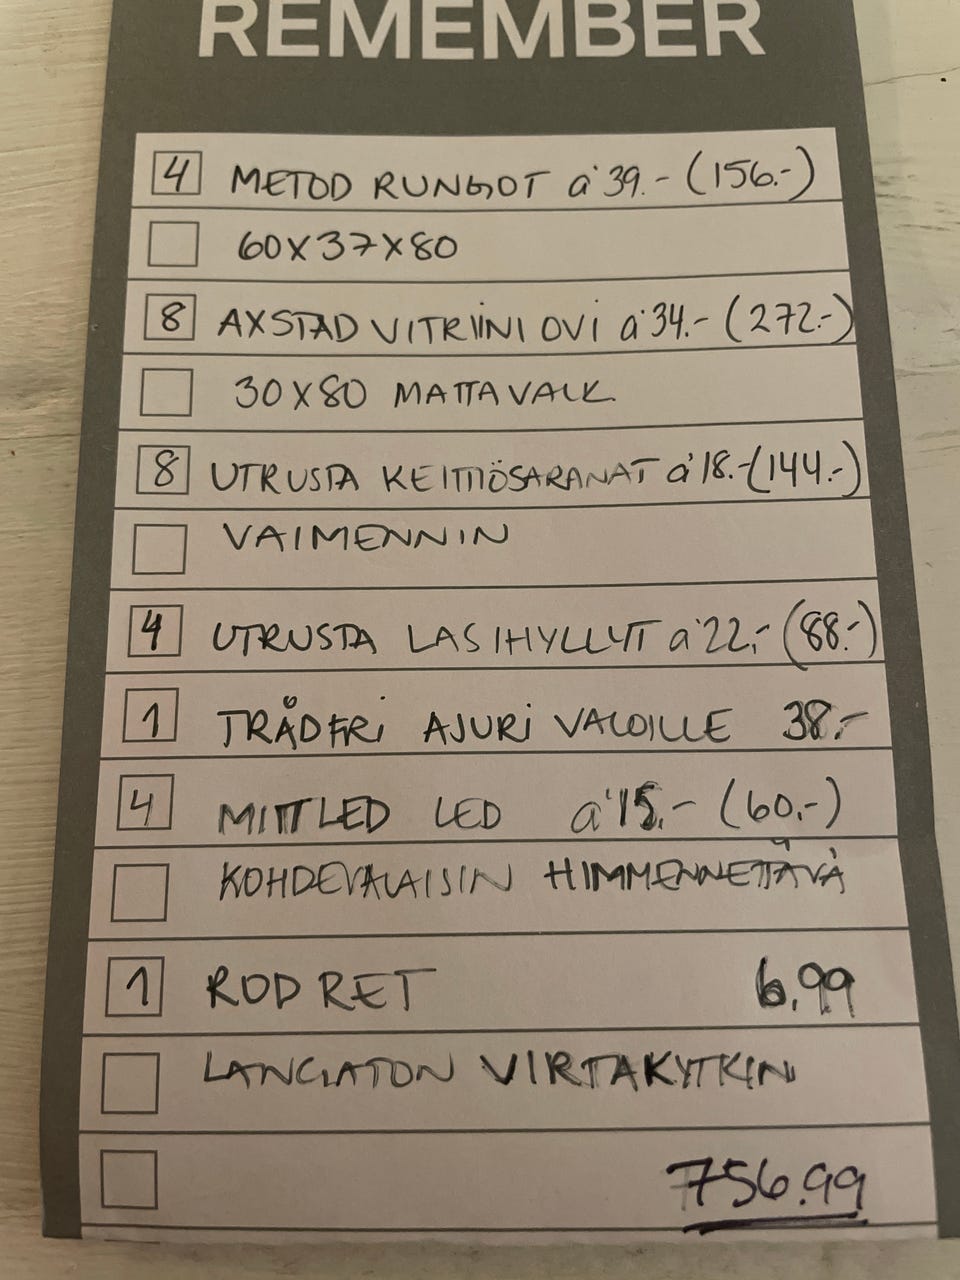 REMEMBER
4 METOD RUNGOT a' 39.- (156.-)
60X37X80
8 AXSTAD VITRIINI OVI a' 34.- (272.-)
30X80 MATTAVALK
8 UTRUSTA KEITTIÖSARANAT a' 18.- (144.-)
VAIMENNIN
4 UTRUSTA LASIHYLLYT a' 22,- (88.-)
1 TRÅDFRI AJURI VALOILLE 38.-
4 MITTLED LED a' 15.- (60.-)
KOHDEVALAISIN HIMMENNETTÄVÄ
1 RODRET 6.99
LANGATON VIRTAKYTKIN
756.99